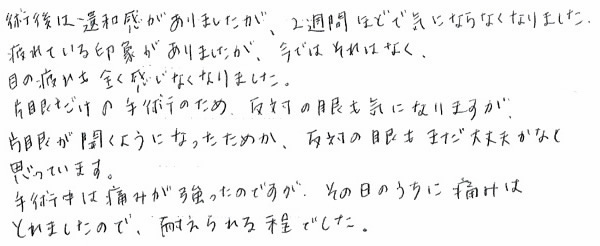 術後は違和感がありましたが、2週間ほどで気にならなくなりました.
疲れている印象がありましたが、今ではそれはなく、
目の疲れも全く感じなくなりました。
片眼だけの手術のため、反対の眼も気になりますが、
片眼が開くようになったためか、反対の眼もまだ大丈夫かなと
思っています。
手術中は痛みが強ったのですが、その日のうちに痛みは
とれましたので、耐えられる程でした。